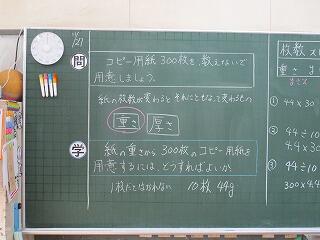 11/27
問
コピー用紙300枚を、数えないで
用意しましょう。
紙の枚数が変わると それにともなって変わるもの
重さ
厚さ
学
紙の重さから300枚のコピー用紙を
用意するには、どうすればよいか
1枚だとはかれない 10枚 44g
枚数
重さ
① 44×30
② 44÷10
4.4×30
③ 44÷10
300×4.4